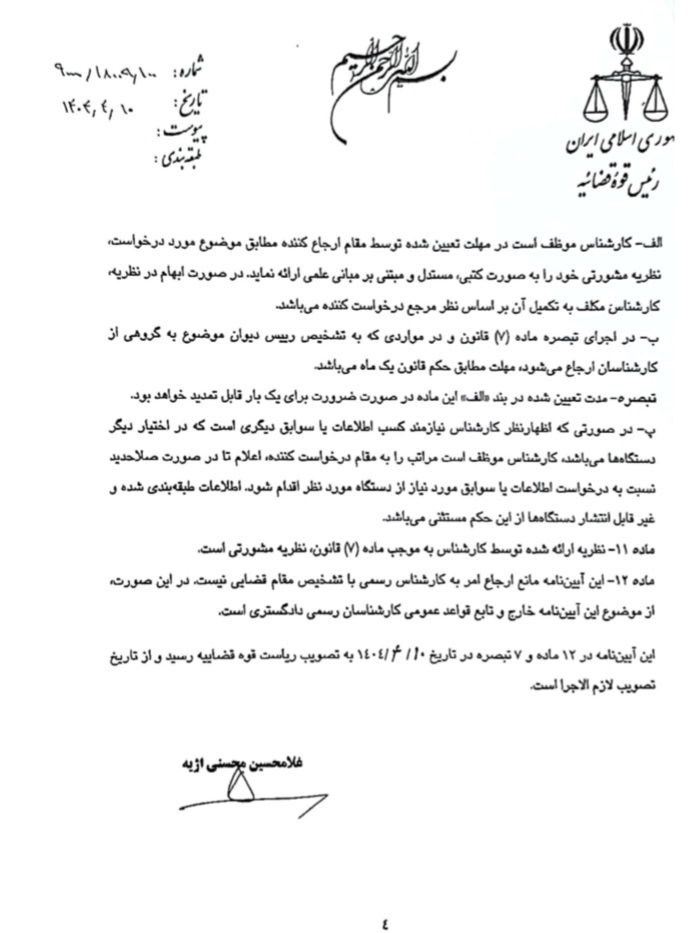 بسم الله الرحمن الرحیم
شماره: ۹۰۰۰/۱۸۰۰۹/۱۰۰
تاریخ: ۱۴۰۴/۴/۱۰
پیوست:
طبقه‌بندی:
هوری اسلامی ایران
رئیس قوهٔ قضائیه
الف- کارشناس موظف است در مهلت تعیین شده توسط مقام ارجاع کننده مطابق موضوع مورد درخواست،
نظریه مشورتی خود را به صورت کتبی، مستدل و مبتنی بر مبانی علمی ارائه نماید. در صورت ابهام در نظریه،
کارشناس مکلف به تکمیل آن بر اساس نظر مرجع درخواست کننده می‌باشد.
ب- در اجرای تبصره ماده (۷) قانون و در مواردی که به تشخیص رییس دیوان موضوع به گروهی از
کارشناسان ارجاع می‌شود، مهلت مطابق حکم قانون یک ماه می‌باشد.
تبصره- مدت تعیین شده در بند «الف» این ماده در صورت ضرورت برای یک بار قابل تمدید خواهد بود.
پ- در صورتی که اظهارنظر کارشناس نیازمند کسب اطلاعات یا سوابق دیگری است که در اختیار دیگر
دستگاه‌ها می‌باشد، کارشناس موظف است مراتب را به مقام درخواست کننده، اعلام تا در صورت صلاحدید
نسبت به درخواست اطلاعات یا سوابق مورد نیاز از دستگاه مورد نظر اقدام شود. اطلاعات طبقه‌بندی شده و
غیر قابل انتشار دستگاه‌ها از این حکم مستثنی می‌باشد.
ماده ۱۱- نظریه ارائه شده توسط کارشناس به موجب ماده (۷) قانون، نظریه مشورتی است.
ماده ۱۲- این آیین‌نامه مانع ارجاع امر به کارشناس رسمی با تشخیص مقام قضایی نیست. در این صورت،
از موضوع این آیین‌نامه خارج و تابع قواعد عمومی کارشناسان رسمی دادگستری است.
این آیین‌نامه در ۱۲ ماده و ۷ تبصره در تاریخ ۱۴۰۴/۴/۱۰ به تصویب ریاست قوه قضاییه رسید و از تاریخ
تصویب لازم الاجرا است.
غلامحسین محسنی اژیه
٤